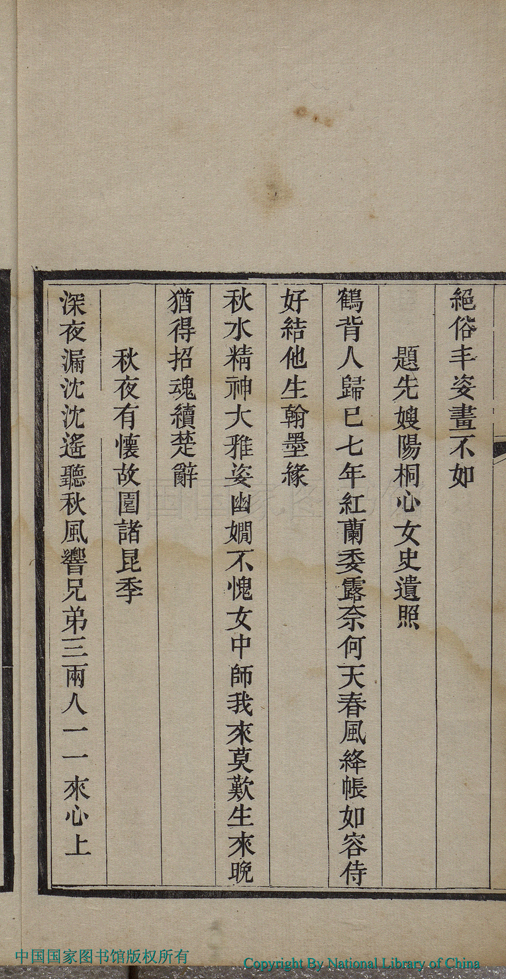 絕俗丰姿畫不如
題先嫂陽桐心女史遺照
鶴背人歸已七年紅蘭委露奈何天春風絳帳如容侍
好結他生翰墨緣
秋水精神大雅姿幽嫺不愧女中師我來莫歎生來晚
猶得招魂續楚辭
秋夜有懷故園諸昆季
深夜漏沈沈遙聽秋風響兄弟三兩人一一來心上
中国国家图书馆版权所有
Copyright By National Library of China